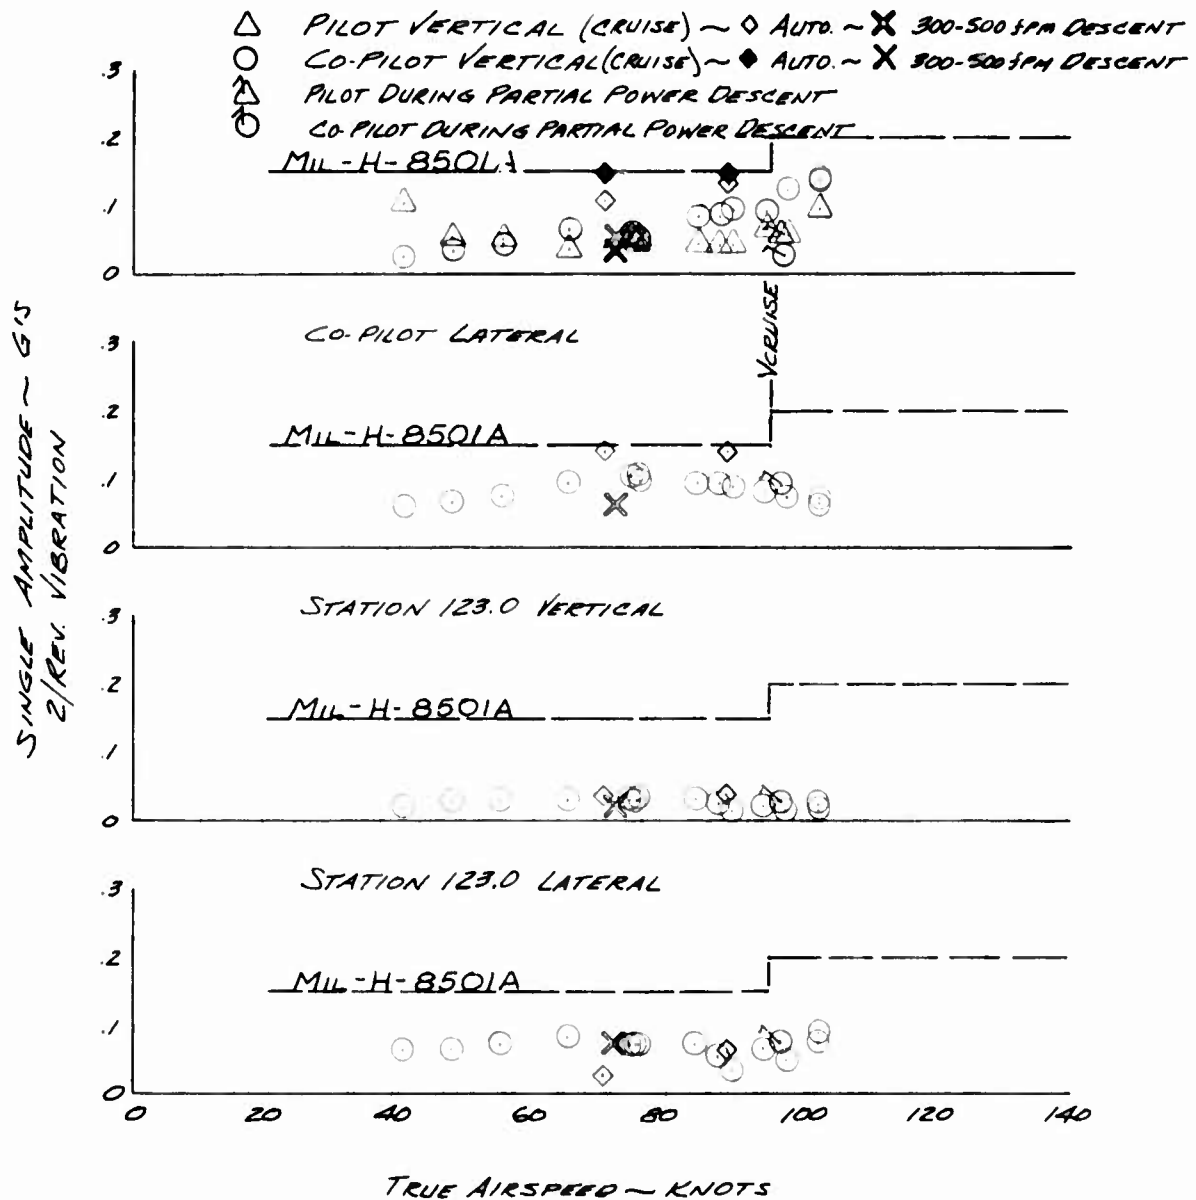 △ PILOT VERTICAL (CRUISE) ~ ◇ AUTO. ~ X 300-500 fpm DESCENT
○ CO-PILOT VERTICAL (CRUISE) ~ ◆ AUTO. ~ X 300-500 fpm DESCENT
PILOT DURING PARTIAL POWER DESCENT
CO-PILOT DURING PARTIAL POWER DESCENT
.3
.2
.1
0
MIL-H-8501A
VCRUISE
CO-PILOT LATERAL
.3
.2
.1
0
MIL-H-8501A
STATION 123.0 VERTICAL
.3
.2
.1
0
MIL-H-8501A
STATION 123.0 LATERAL
.3
.2
.1
0
MIL-H-8501A
0 20 40 60 80 100 120 140
TRUE AIRSPEED ~ KNOTS
SINGLE AMPLITUDE ~ G'S
2/REV. VIBRATION